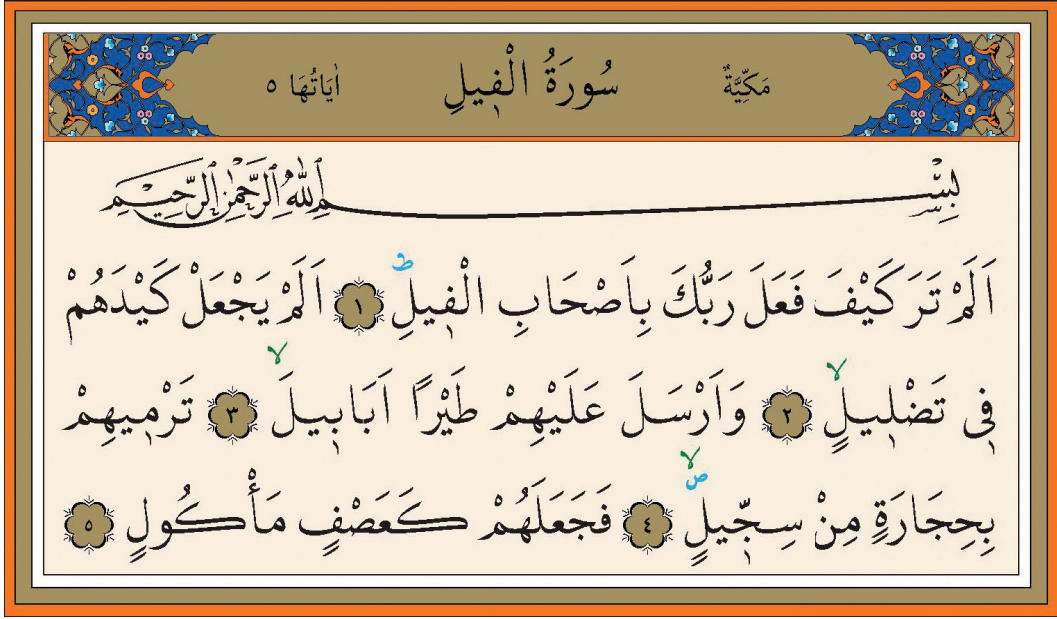 مَكِّيَّةٌ سُورَةُ الْف۪يلِ اٰيَاتُهَا ٥
بِسْمِ اللّٰهِ الرَّحْمٰنِ الرَّح۪يمِ
اَلَمْ تَرَ كَيْفَ فَعَلَ رَبُّكَ بِاَصْحَابِ الْف۪يلِۜ ١ اَلَمْ يَجْعَلْ كَيْدَهُمْ
ف۪ي تَضْل۪يلٍۙ ٢ وَاَرْسَلَ عَلَيْهِمْ طَيْرًا اَبَاب۪يلَۙ ٣ تَرْم۪يهِمْ
بِحِجَارَةٍ مِنْ سِجّ۪يلٍۙۖ ٤ فَجَعَلَهُمْ كَعَصْفٍ مَأْكُولٍ ٥